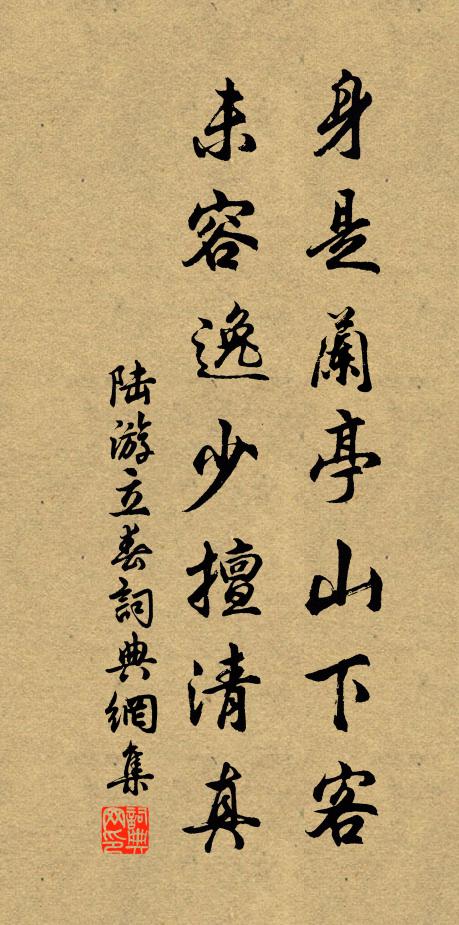 身是蘭亭山下客
未容逸少擅清真
陆游立春詞典網集
詞典网印